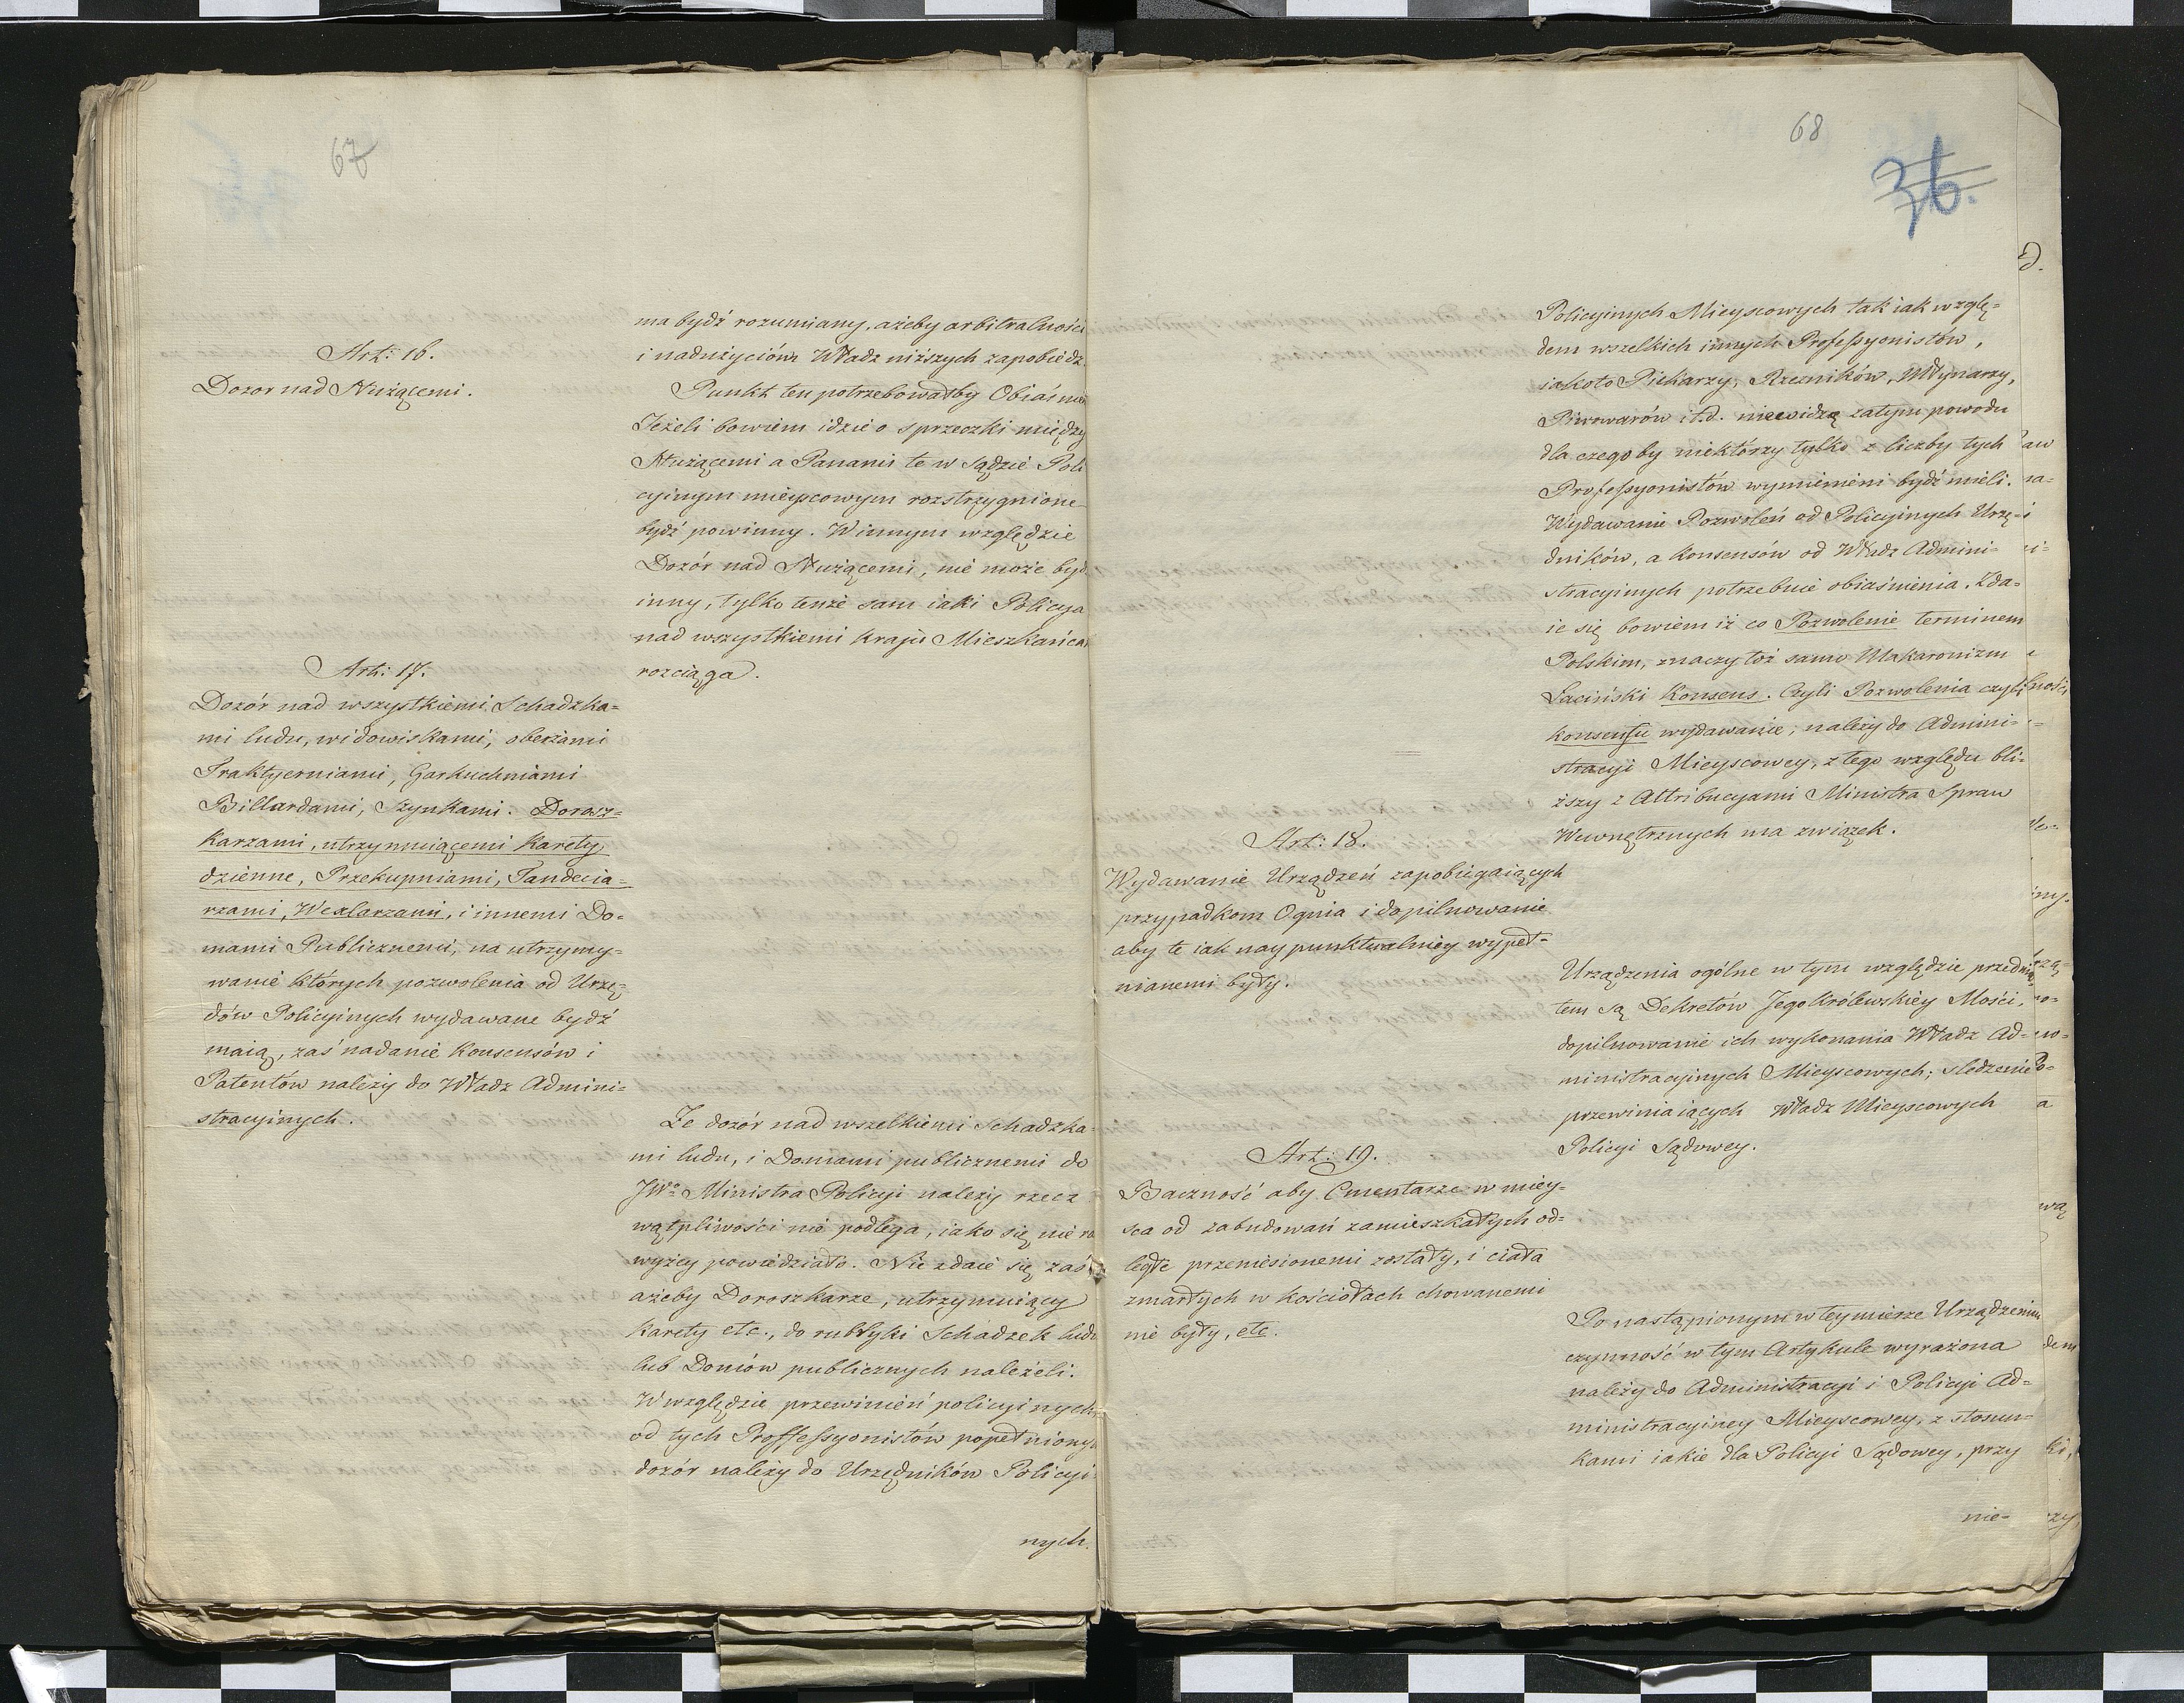 67
Art: 16.
Dozor nad Służącemi.
Art: 17.
Dozór nad wszystkiemi Schadzka=
mi ludu, widowiskami, oberżami
Traktyerniami, Garkuchniami
Billardami, Szynkami. Dorosz=
karzami, utrzymuiącemi Karety
dzienne, Przekupniami, Tandecia=
rzami, Wexlarzami, i innemi Do=
mami Publicznemi, na utrzymy=
wanie których pozwolenia od Urzę=
dów Policyinych wydawane bydź
maią, zaś nadanie Konsensów i
Patentów należy do Władz Admini=
stracyinych.
ma bydź rozumiany, ażeby arbitralności
i nadużyciów Władz niższych zapobiedz.
Punkt ten potrzebowałby Obiaśnie
Jeżeli bowiem idzie o sprzeczki między
Służącemi a Panami te w Sądzie Poli
cyinym mieyscowym rozstrzygnione
bydź powinny. W innym względzie
Dozór nad Służącemi, nie może byd
inny, tylko tenże sam iaki Policya
nad wszystkiemi Kraju Mieszkańca
rozciąga.
Że dozór nad wszelkiemi Schadzka=
mi ludu, i Domami publicznemi do
JWo Ministra Policyi należy rzecz
wątpliwości nie podlega, iako się nie ra
wyżey powiedziało. Nie zdaie się zaś
ażeby Doroszkarze, utrzymuiący
Karety etc., do rubryki Schadzek ludu
lub Domów publicznych należeli.
W względzie przewinień policyinych
od tych Proffessyonistów popełniony
dozór należy do Urzędników Policyi
nych.
68
36.
Art: 18.
Wydawanie Urządzeń zapobiegaiących
przypadkom Ognia i dopilnowanie
aby te iak nay punktualniey wypeł=
nianemi były.
Art: 19.
Baczność aby Cmentarze w miey=
sca od zabudowań zamieszkałych od=
ległe przeniesionemi zostały, i ciała
zmarłych w kościołach chowanemi
nie były, etc.
Policyinych Mieyscowych tak iak wzglę=
dem wszelkich innych Professyonistów,
iakoto Piekarzy, Rzezników, Młynarzy,
Piwowarów itd. niewidzę zatym powodu
dla czegoby niektórzy tylko z liczby tych
Professyonistów wymienieni bydź mieli.
Wydawanie Pozwoleń od Policyinych Urzę=
dników, a Konsensów od Władz Admini=
stracyinych potrzebuie obiaśnienia. Zda=
ie się bowiem iż co Pozwolenie terminem
Polskim, znaczy toż samo Makaronizm
Łaciński Konsens. Czyli Pozwolenia czyli
Konsensu wydawanie, należy do Admini=
stracyi Mieyscowey, z tego względu bli=
ższy z Attribucyami Ministra Spraw
Wewnętrznych ma związek.
Urządzenia ogólne w tym względzie przedmio
tem są Dekretów Jego Królewskiey Mości,
dopilnowanie ich wykonania Władz Ad=
ministracyinych Mieyscowych; śledzenie
przewiniaiących Władz Mieyscowych
Policyi Sądowey.
Po nastąpionym w tey mierze Urządzeniu
czynność w tym Artykule wyrażona
należy do Administracyi i Policyi Ad=
ministracyiney Mieyscowey, z stosun=
kami iakie dla Policyi Sądowey, przy
nie=